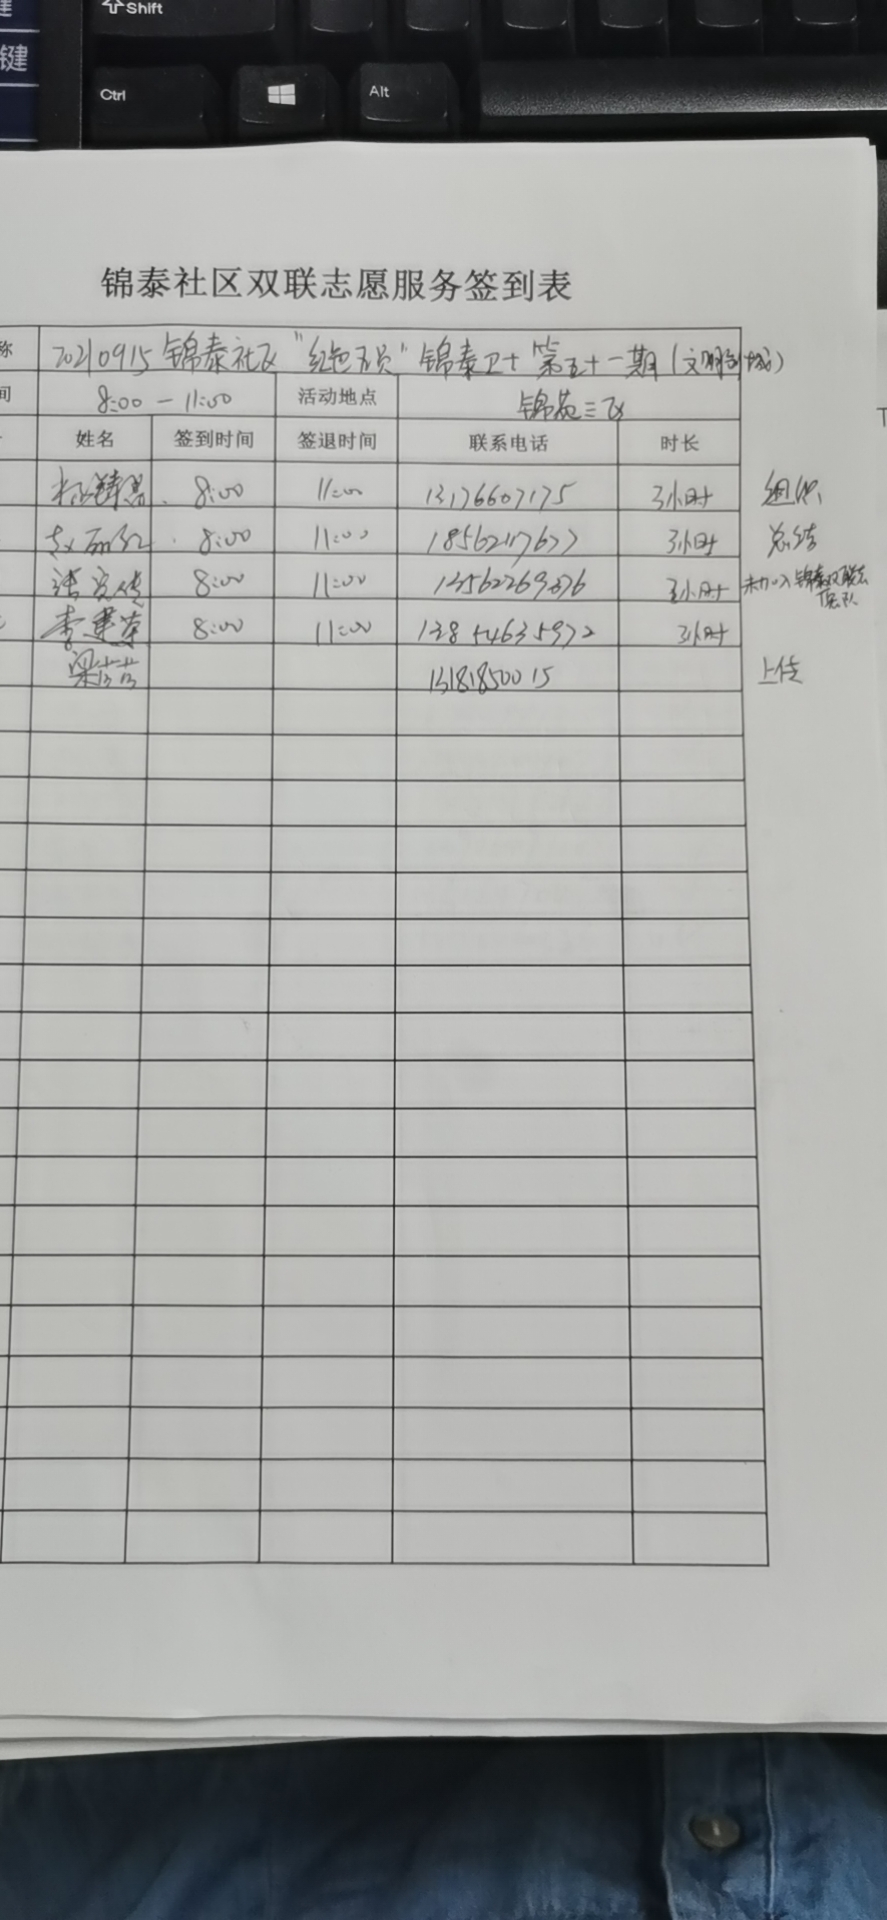 Shift
键
Ctrl
Alt
锦泰社区双联志愿服务签到表
称 20210915 锦泰社区"红色五员"锦泰卫士第五十一期(文明创城)
间 8:00-11:00 活动地点 锦苑三区
姓名 签到时间 签退时间 联系电话 时长
8:00 11:00 13176607175 3小时 组织
8:00 11:00 3小时 总结
8:00 11:00 3小时 未加入锦泰双联志愿队
李 8:00 11:00 13854635972 3小时
梁芸芸 13181850015 上传